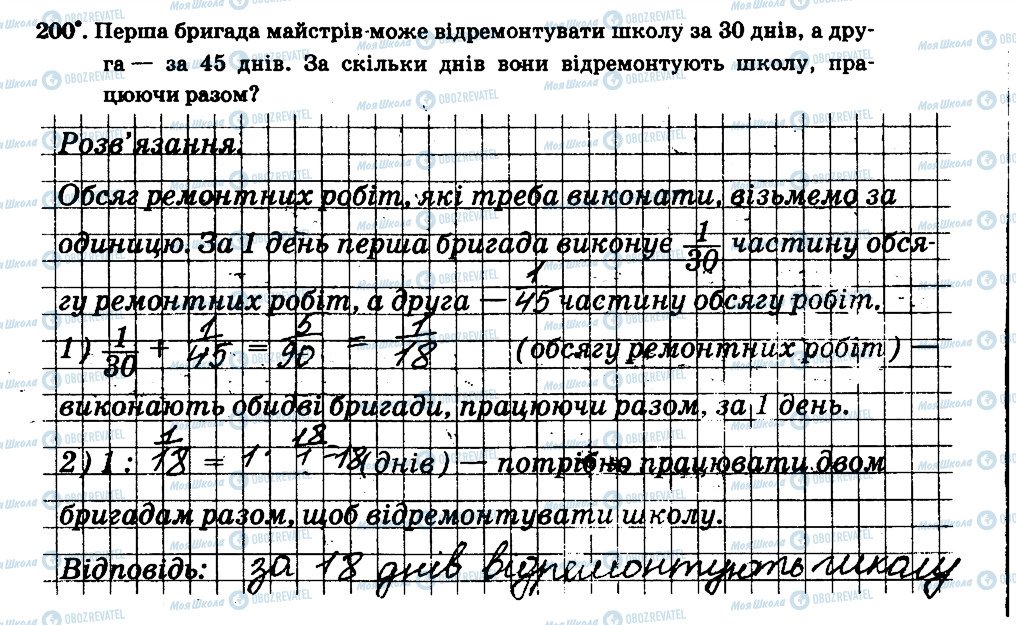 200°. Перша бригада майстрів може відремонтувати школу за 30 днів, а дру-
га — за 45 днів. За скільки днів вони відремонтують школу, пра-
цюючи разом?
Розв'язання:
Обсяг ремонтних робіт, які треба виконати, візьмемо за
одиницю. За 1 день перша бригада виконує 1/30 частину обся-
гу ремонтних робіт, а друга — 1/45 частину обсягу робіт.
1) 1/30 + 1/45 = 5/90 = 1/18 (обсягу ремонтних робіт) —
виконають обидві бригади, працюючи разом, за 1 день.
2) 1 : 1/18 = 1 · 18/1 = 18 (днів) — потрібно працювати двом
бригадам разом, щоб відремонтувати школу.
Відповідь: за 18 днів відремонтують школу